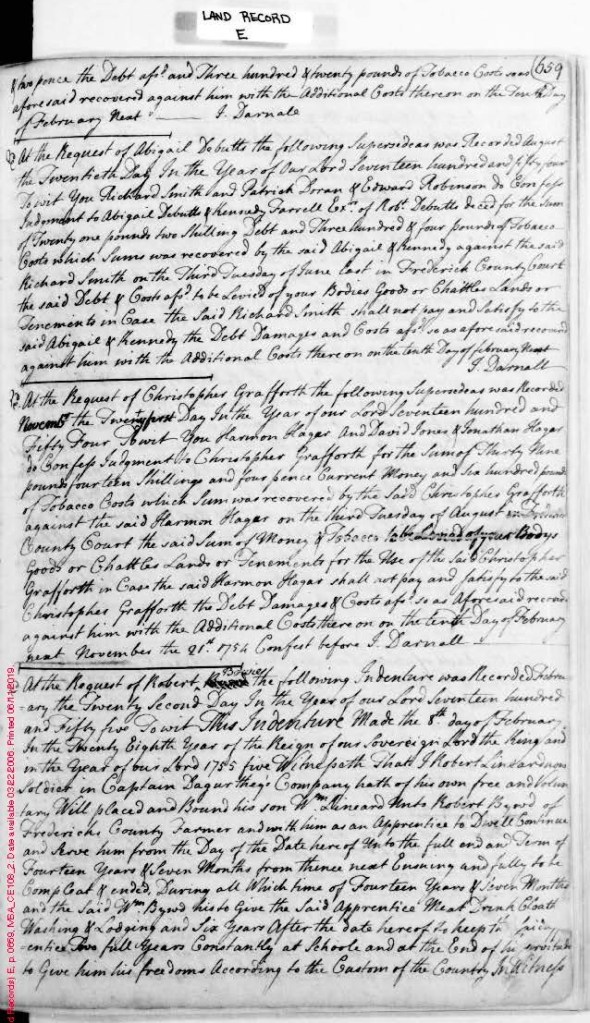 LAND RECORD
E
659
& two pence the Debt afsd and Three hundred & twenty pounds of Tobacco Costs so as
aforesaid recovered against him with the Additional Costs thereon on the Tenth Day
of February Next J. Darnale
At the Request of Abigail Debutts the following Supersideas was Recorded August
the Twentieth Day In the Year of Our Lord Seventeen hundred and fifty four
Towit You Richard Smith and Patrick Doran & Edward Robinson do Confess
Judgment to Abigail Debutts & Kennedy Farrell Exrs of Robt Debutts deced for the Sum
of Twenty one pounds two Shilling Debt and Three hundred & four pounds of Tobacco
Costs which Sums was recovered by the said Abigail & Kennedy against the said
Richard Smith on the Third Tuesday of June last in Frederick County Court
the said Debt & Costs afsd to be Levied of your Bodies Goods or Chattles Lands or
Tenements in Case the Said Richard Smith shall not pay and Satisfy to the
said Abigail & Kennedy the Debt Damages and Costs afsd so as aforesaid recovered
against him with the Additional Costs thereon on the tenth Day of february Next
J. Darnall
At the Request of Christopher Grafforth the following Supersideas was Recorded
Novemr the Twenty first Day In the Year of our Lord Seventeen hundred and
Fifty Four Towit You Harmon Hagar And David Jones & Jonathan Hagar
do Confess Judgment to Christopher Grafforth for the Sum of Thirty Nine
pounds fourteen Shillings and four pence Current Money and Six hundred pounds
of Tobacco Costs which Sum was recovered by the Said Christopher Grafforth
against the said Harmon Hagar on the third Tuesday of August in Frederick
County Court the said Sum of Money & Tobacco to be Levied of your Bodys
Goods or Chattles Lands or Tenements for the Use of the Said Christopher
Grafforth in Case the said Harmon Hagar shall not pay and Satisfy to the said
Christopher Grafforth the Debt Damages & Costs afsd so as Aforesaid recovd
against him with the Additional Costs thereon on the tenth Day of February
next November the 21st 1754 Confest before J. Darnall
At the Request of Robert the following Indenture was Recorded Febru
-ary the Twenty Second Day In the Year of our Lord Seventeen hundred
and Fifty five Towit This Indenture Made the 8th day of February
In the Twenty Eighth Year of the Reign of our Sovereign Lord the King and
in the Year of our Lord 1755 five Witnesseth That I Robert
Soldier in Captain Company hath of his own free and Volun
tary Will placed and Bound his son Wm Lineard Unto Robert Byord of
Frederick County Farmer and with him as an Apprentice to Dwell Continue
and Serve him from the Day of the Date hereof Unto the full end and Term of
Fourteen Years & Seven Months from thence next Ensuing and fully to be
Compleat & ended, During all Which time of Fourteen Years & Seven Months
and the Said Wm Byord his to Give the Said Apprentice Meat Drink Cloath
Washing & Lodging and Six Years After the date hereof to keep the
-entice Two full Years Constantly at Schoole and at the End of his servitude
to Give him his freedoms According to the Custom of the Country In Witness
d Records) E, p. 0659, MSA_CE108_2. Date available 03/22/2006. Printed 06/11/2019.